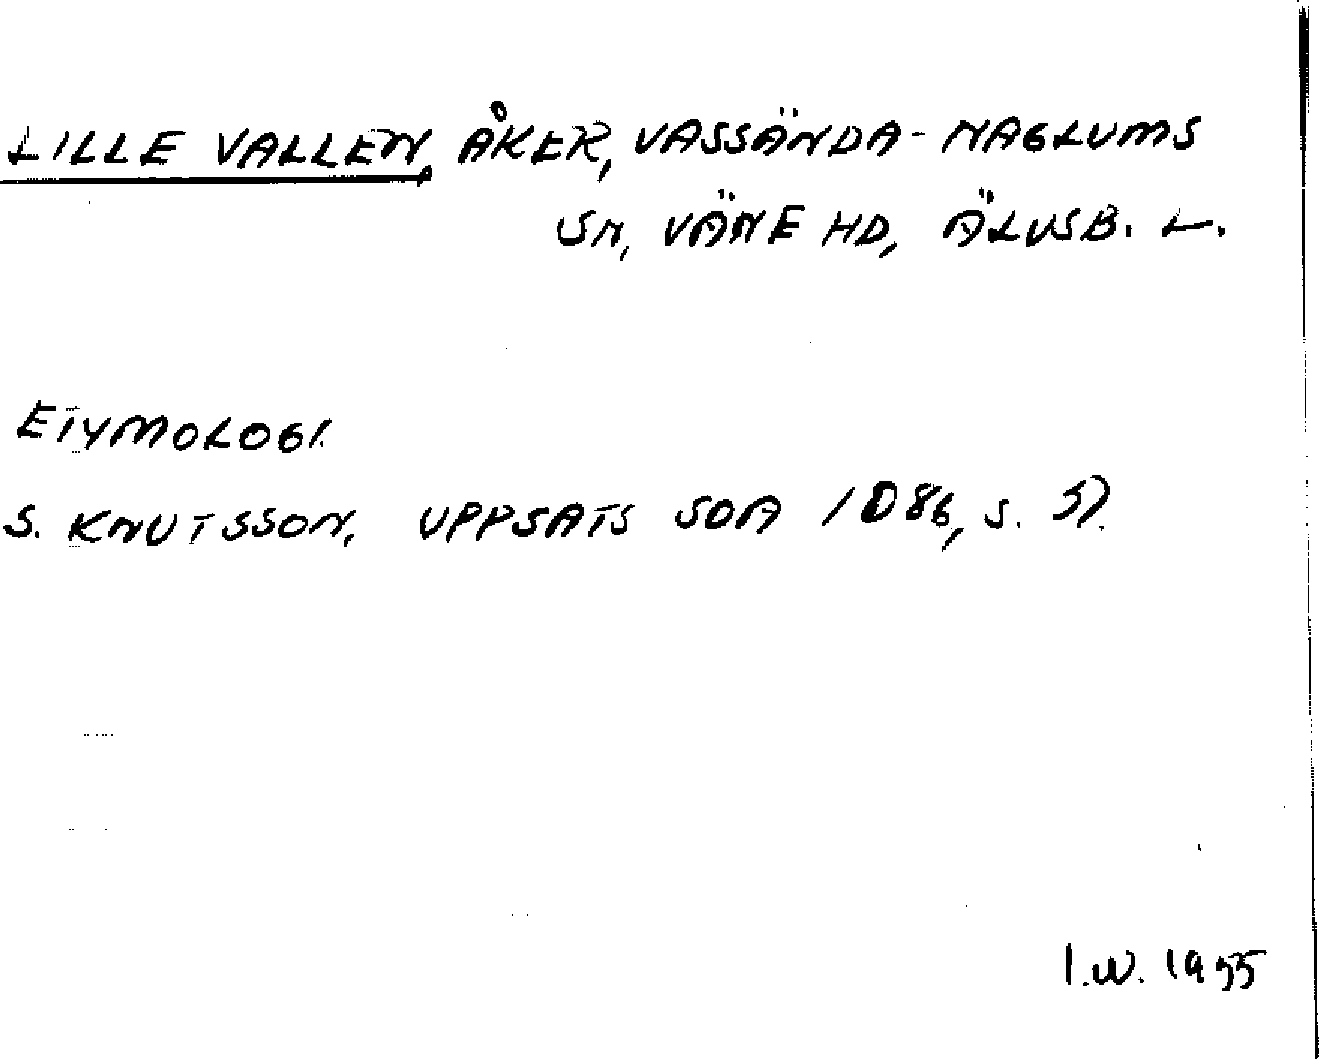 LILLE VALLEN, ÅKER, VASSÄNDA-NAGLUMS
SN, VÄNE HD, ÄLVSB. L.
ETYMOLOGI.
S. KNUTSSON, UPPSATS SOA 1086, S.
I.W. 1955